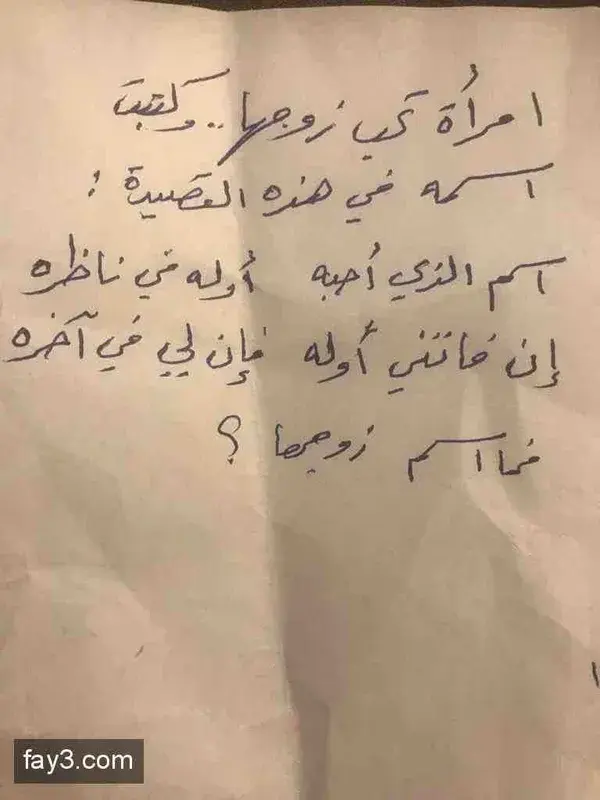 امرأة تحب زوجها .. وكتبت
اسمه في هذه القصيدة :
اسم الذي أحبه أوله في ناظره
إن فاتني أوله فإن لي في آخره
فما اسم زوجها ؟
fay3.com